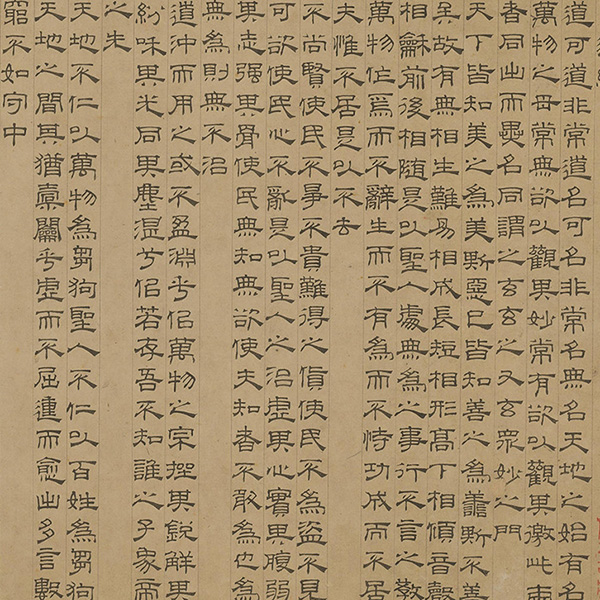 道可道非常道名可名非常名無名天地之始有名
萬物之母常無欲以觀其妙常有欲以觀其徼此兩
者同出而異名同謂之玄玄之又玄眾妙之門
天下皆知美之為美斯惡已皆知善之為善斯不善
矣故有無相生難易相成長短相形高下相傾音聲
相龢前後相隨是以聖人處無為之事行不言之教
萬物作焉而不辭生而不有為而不恃功成而不居
夫惟不居是以不去
不尚賢使民不爭不貴難得之貨使民不為盜不見
可欲使民心不亂是以聖人之治虛其心實其腹弱
其志强其骨使民無知無欲使夫知者不敢為也為
無為則無不治
道沖而用之或不盈淵乎佀萬物之宗挫其銳解其
紛咊其光同其塵湛兮佀若存吾不知誰之子象帝
之先
天地不仁以萬物為芻狗聖人不仁以百姓為芻狗
天地之間其猶橐籥乎虛而不屈動而愈出多言數
窮不如守中